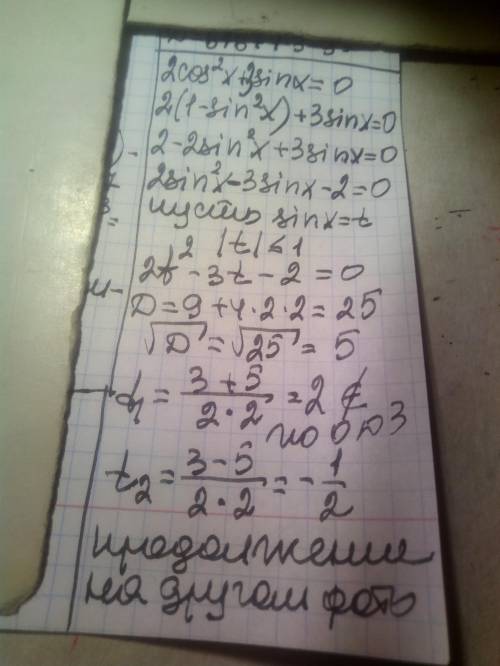 2cos²x+3sinx=0
2(1-sin²x)+3sinx=0
2-2sin²x+3sinx=0
2sin²x-3sinx-2=0
пусть sinx=t
|t|≤1
2t²-3t-2=0
D=9+4·2·2=25
√D=√25=5
t₁=(3+5)/(2·2)=2 ∉
по ОДЗ
t₂=(3-5)/(2·2)=-1/2
продолжение
на другом фото